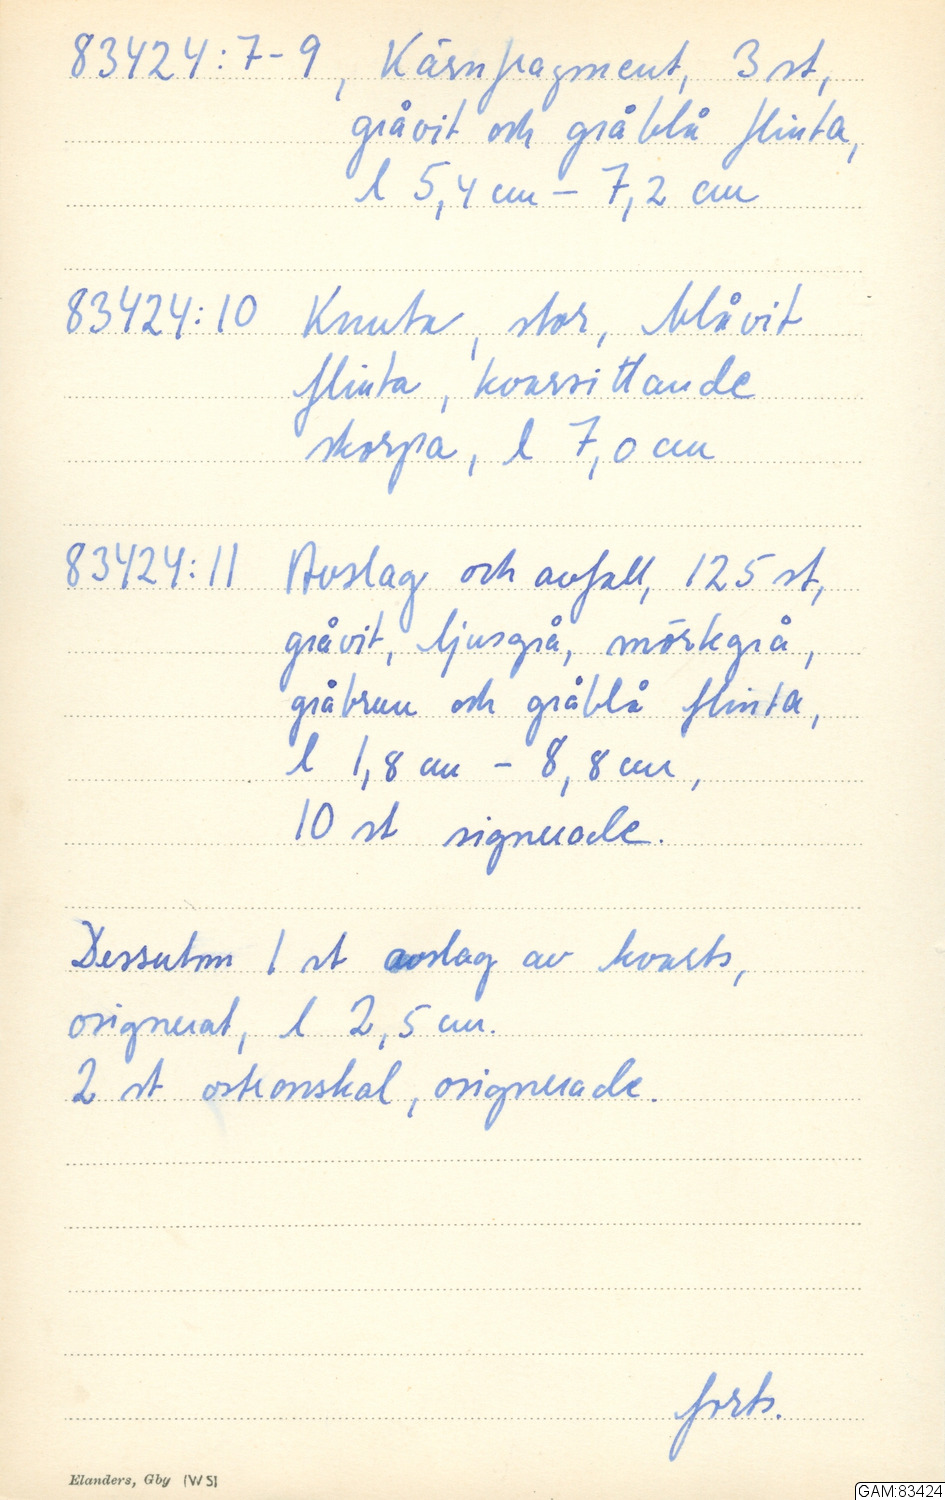 83424:7-9, Kärnfragment, 3 st,
gråvit och gråblå flinta,
l 5,4 cm – 7,2 cm
83424:10 Knuta, stor, blåvit
flinta, kvarsittande
skorpa, l 7,0 cm
83424:11 Avslag och avfall, 125 st,
gråvit, ljusgrå, mörkgrå,
gråbrun och gråblå flinta,
l 1,8 cm – 8,8 cm,
10 st signerade.
Dessutom 1 st avslag av kvarts,
osignerat, l 2,5 cm.
2 st ostronskal, osignerade.
forts.
Elanders, Gby (WS)
GAM:83424